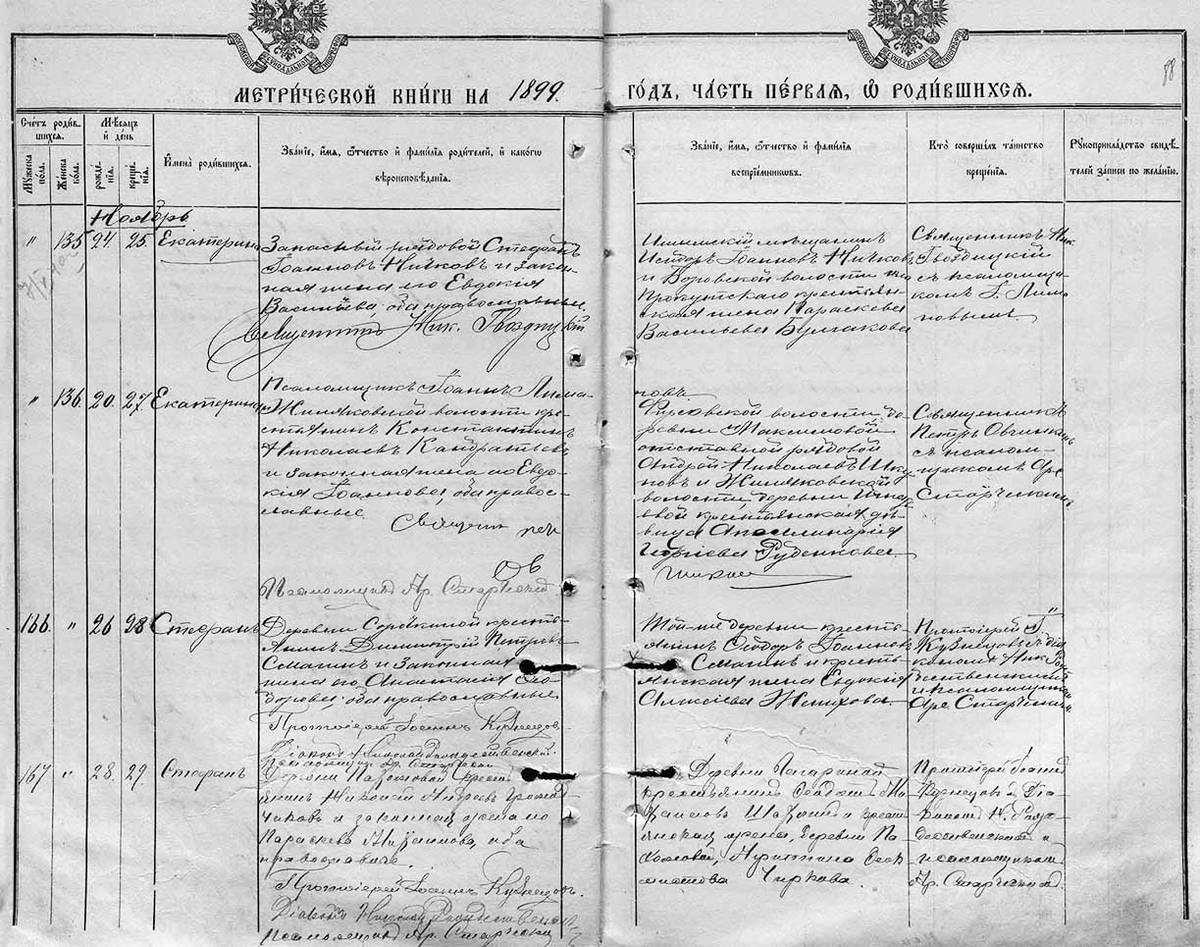 МЕТРИЧЕСКОЙ КНИГИ НА 1899.
ГОДЪ, ЧАСТЬ ПЕРВАЯ, Ѡ РОДИВШИХСЯ.
88
Счетъ родив-
шихся.
Мужеска
пола.
Женска
пола.
Мѣсяцъ
и день
рожде-
нія.
креще-
нія.
Имена родившихся.
Званіе, имя, отчество и фамилія родителей, и какогѡ
вѣроисповѣданія.
Званіе, имя, отчество и фамилія
воспріемниковъ.
Кто совершалъ таинство
крещенія.
Рукоприкладство свидѣ-
телей записи по желанію.
Ноябрь
" 135 24. 25. Екатерина
Запасный рядовой Стефанъ
Іоанновъ Ничковъ и закон-
ная жена его Евдокія
Васильева, оба православные.
Священникъ Ник. Гвоздицкій
Ишимскій мѣщанинъ
Исидоръ Іоанновъ Ничковъ
и Боровской волости
крестьян-
ская жена Параскева
Васильева Булгакова
Священникъ Ник.
Гвоздицкій
съ псаломщи-
комъ І. Лима-
новымъ
" 136. 20. 27 Екатерина
Псаломщикъ Іоаннъ Лима-
новъ.
Жиляковской волости кре-
стьянинъ Константинъ
Николаевъ Кандратьевъ
и законная жена его Евдо-
кія Іоаннова, оба право-
славные.
Священ
Псаломщикъ Ар. Старченко
волости, де-
ревни Максимовой
отставной рядовой
Андрей Николаевъ
и Жиляковской
волости, деревни
крестьянская дѣ-
вица Аполлинарія
Рубенкова
Священникъ
Петръ Овчинкинъ
съ псалом-
щикомъ Ар.
Старченкомъ
166. " 26 28 Стефанъ
Деревни Сорокиной кресть-
янинъ Димитрій Петровъ
Смагинъ и законная
жена его Анастасія Ѳео-
дорова, оба православные.
Протоіерей Іоаннъ Кузнецовъ.
Діаконъ Николай Рождественскій.
Псаломщикъ Ар. Старченко
Той-же деревни кресть-
янинъ Ѳеодоръ Іоанновъ
Смагинъ и кресть-
янская жена Евдокія
Алексіева Женихова.
Протоіерей І.
Кузнецовъ съ діа-
кономъ Ник. Рож-
дественскимъ
и псаломщикомъ
Ар. Старченкомъ
167 " 28. 29. Стефанъ
Деревни Пахомовой кресть-
янинъ Николай Андреевъ
и законная жена его
Параскева, оба
православные.
Протоіерей Іоаннъ Кузнецовъ.
Діаконъ Николай Рождественскій
Псаломщикъ Ар. Старченко
Деревни
крестьянинъ
и кресть-
янская жена, деревни Па-
хомовой, Христина
Чиркова.
Протоіерей Іоаннъ
Кузнецовъ съ діа-
кономъ Н. Рож-
дественскимъ и
псаломщикомъ
Ар. Старченкомъ.